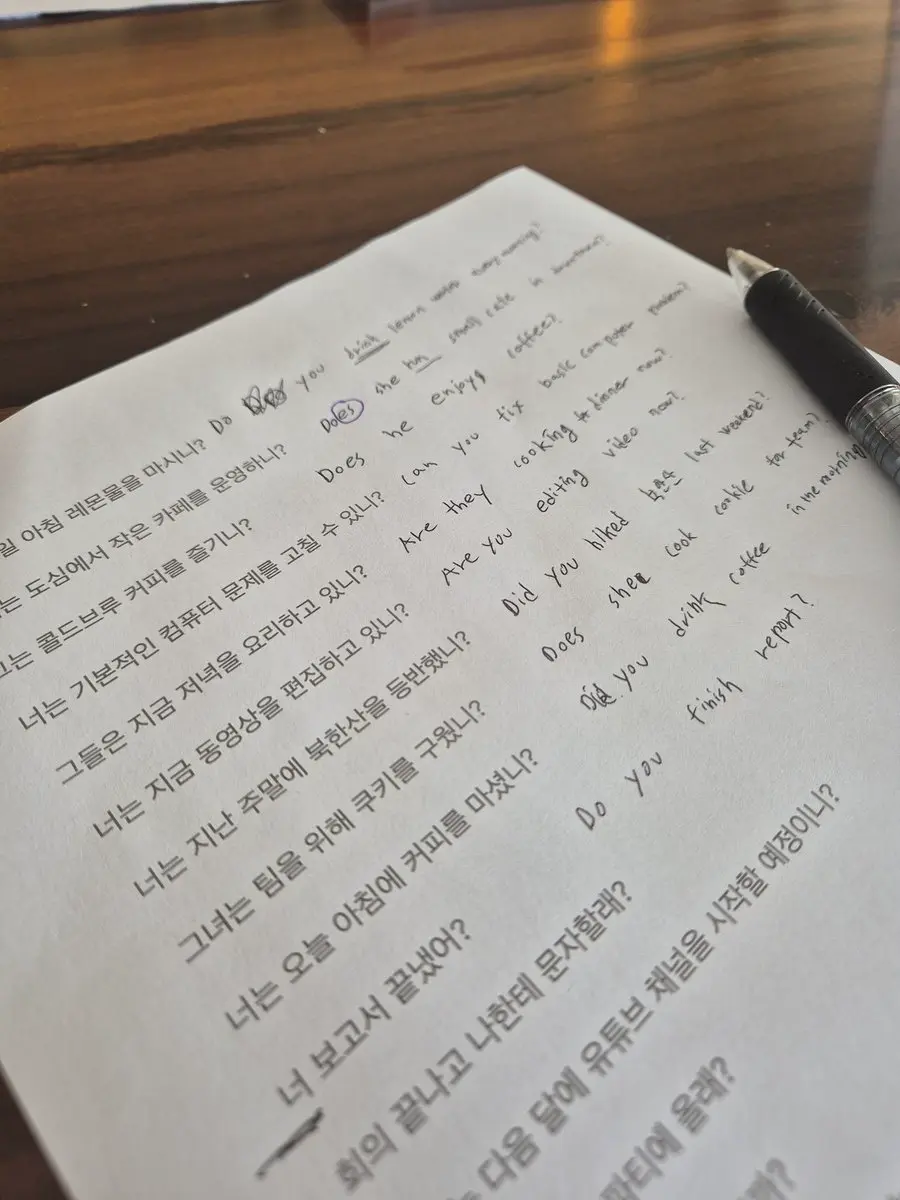 일 아침 레몬물을 마시니? Do you drink lemon water every morning?
는 도심에서 작은 카페를 운영하니? Does she run small cafe in downtown?
그는 콜드브루 커피를 즐기니? Does he enjoy coffee?
너는 기본적인 컴퓨터 문제를 고칠 수 있니? Can you fix basic computer problem?
그들은 지금 저녁을 요리하고 있니? Are they cooking dinner now?
너는 지금 동영상을 편집하고 있니? Are you editing video now?
너는 지난 주말에 북한산을 등반했니? Did you hiked last weekend?
그녀는 팀을 위해 쿠키를 구웠니? Does she cook cookie for team?
너는 오늘 아침에 커피를 마셨니? Did you drink coffee in the morning
너 보고서 끝냈어? Do you finish report?
회의 끝나고 나한테 문자할래?
는 다음 달에 유튜브 채널을 시작할 예정이니?
파티에 올래?